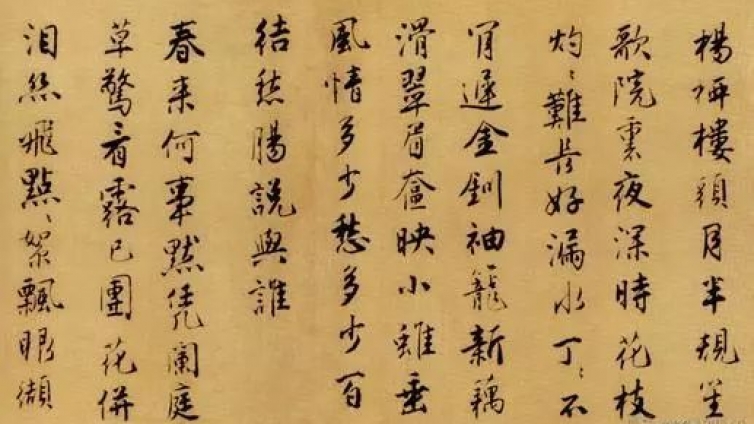 楊柳樓頭月半規笙
歌院裏夜深時花枝
灼〻難長好漏水丁〻不
肯遲金釧袖籠新藕
滑翠眉奩映小蛾垂
風情多少愁多少百
結愁腸說與誰
春來何事默凭闌庭
草驚看露已團花併
泪絲飛點〻絮飄眼纈